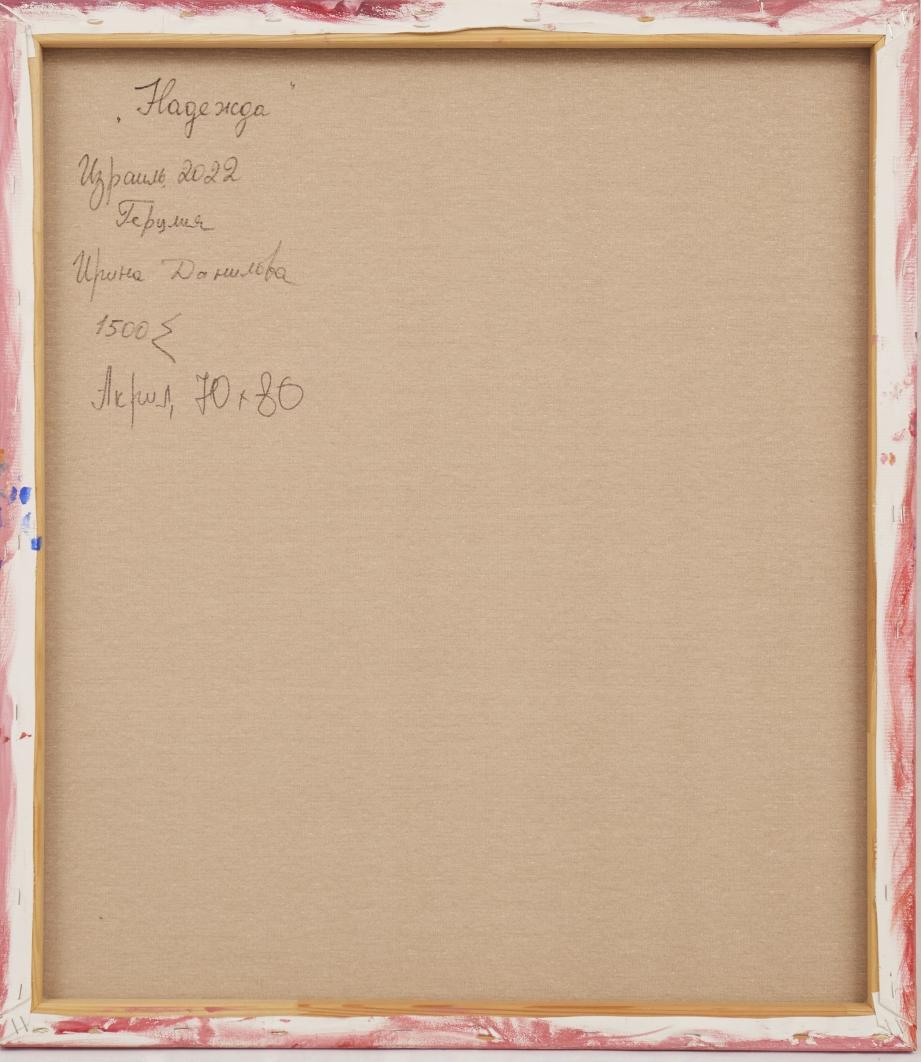 „Надежда"
Израиль 2022
Герцлия
Ирина Данилова
1500
Акрил, 70 x 80